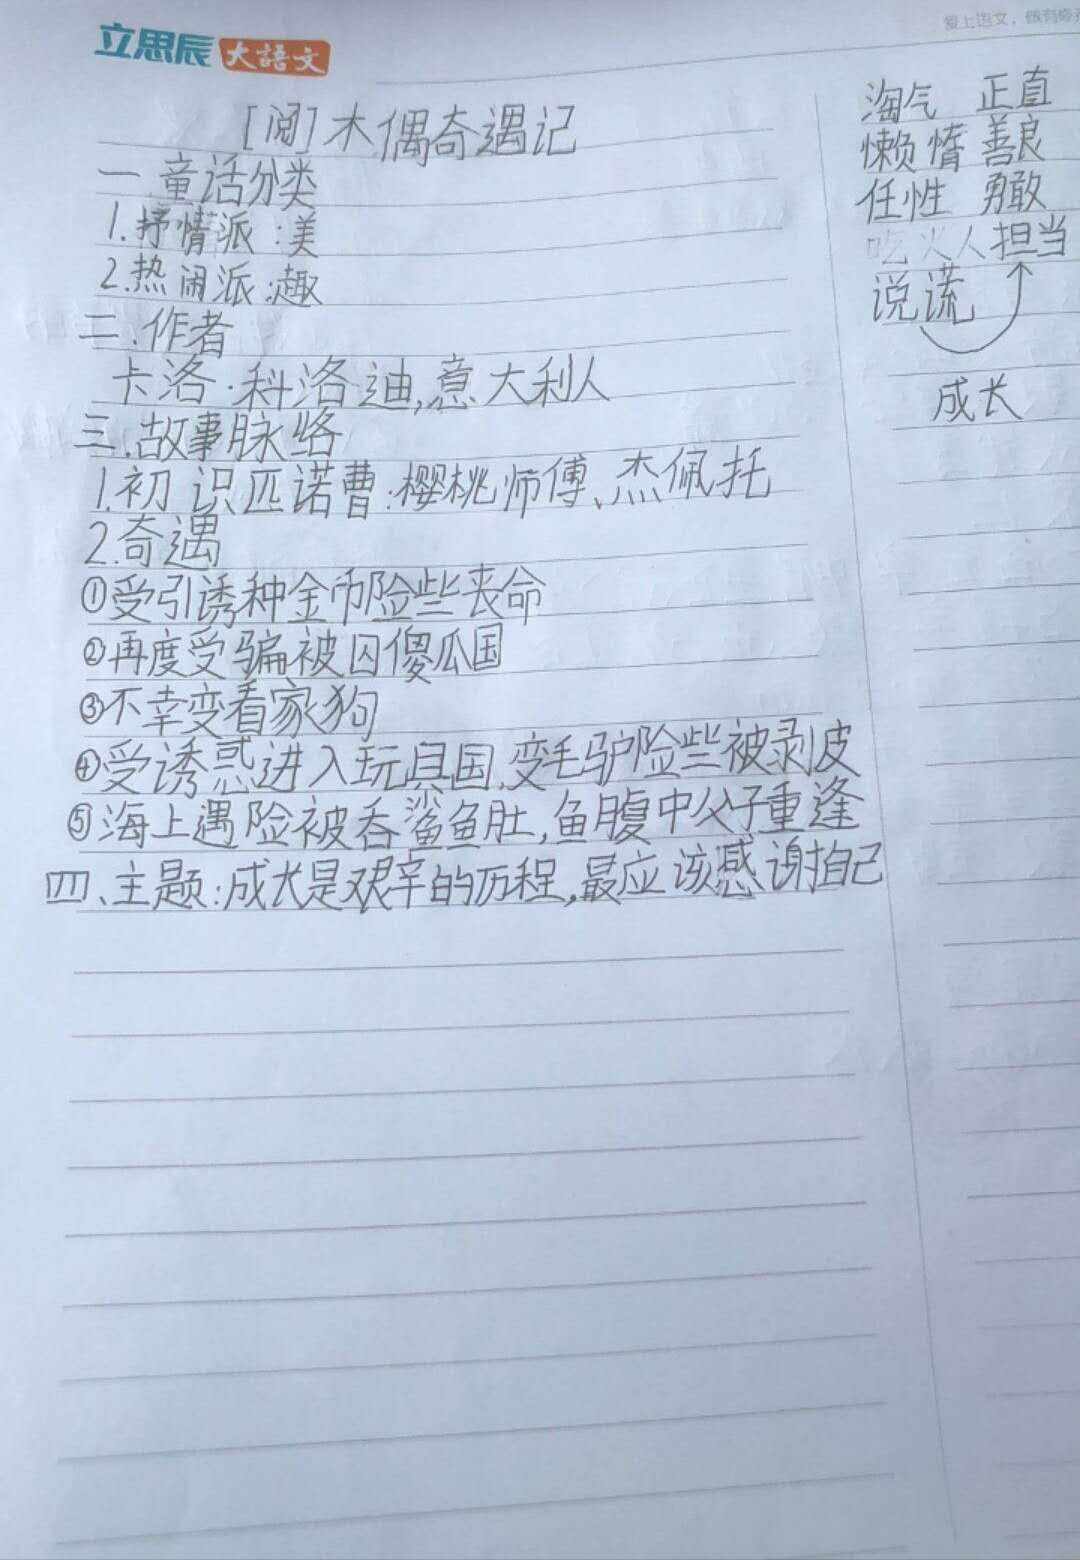 立思辰 大語文
爱上语文，做有修
[阅]木偶奇遇记
一.童话分类
1.抒情派:美
2.热闹派:趣
二.作者
卡洛·科洛迪,意大利人
三.故事脉络
1.初识匹诺曹:樱桃师傅、杰佩托
2.奇遇
①受引诱种金币险些丧命
②再度受骗被囚傻瓜国
③不幸变看家狗
④受诱惑进入玩具国,变毛驴险些被剥皮
⑤海上遇险被吞鲨鱼肚,鱼腹中父子重逢
四、主题:成长是艰辛的历程,最应该感谢自己
淘气 正直
懒惰 善良
任性 勇敢
担当
说谎
成长